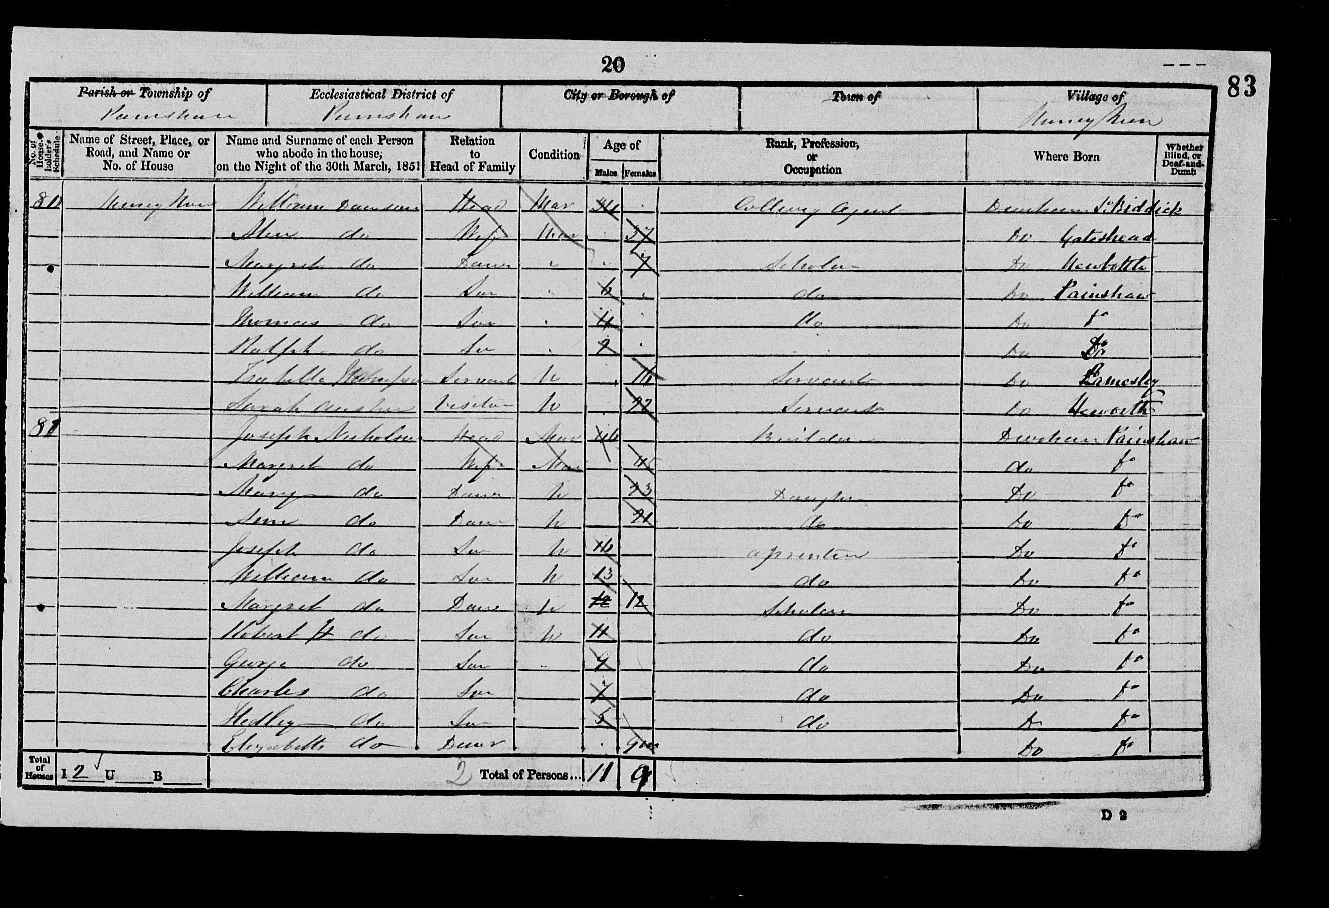 20
83
Parish or Township of Painshaw
Ecclesiastical District of Painshaw
City or Borough of
Town of
Village of
No. of Householder's Schedule
Name of Street, Place, or Road, and Name or No. of House
Name and Surname of each Person who abode in the house, on the Night of the 30th March, 1851
Relation to Head of Family
Condition
Age of
Males
Females
Rank, Profession, or Occupation
Where Born
Whether Blind, or Deaf-and-Dumb
William Dawson Head Mar 34 Colliery Agent Durham Sr. Biddick
do Wife Mar 37 Do Gateshead
Margret do Daur 7 Scholar Do Newbottle
William do Son 6 do Do Painshaw
Thomas do Son 4 do Do Do
Ralph do Son 2 Do Do
Isabella Servant U 16 Servant Do Lamesley
Sarah Visitor U 22 Servant Do Heworth
Joseph Nicholson Head Mar 46 Builder Durham Painshaw
Margret do Wife Mar 45 do Do
Mary do Daur U 23 Daughter Do Do
do Daur U 21 do Do Do
Joseph do Son U 16 aprentice Do Do
William do Son U 13 do Do Do
Margret do Daur U 12 12 Scholar Do Do
Robert H do Son U 11 do Do Do
George do Son 9 do Do Do
Charles do Son 7 do Do Do
Hedley do Son 5 do Do Do
Elizabeth do Daur Do Do
Total of Houses I 2 U B
2 Total of Persons... 11 9
D 2